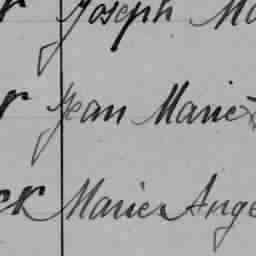 Joseph Ma
Jean Marie
Marie Ange